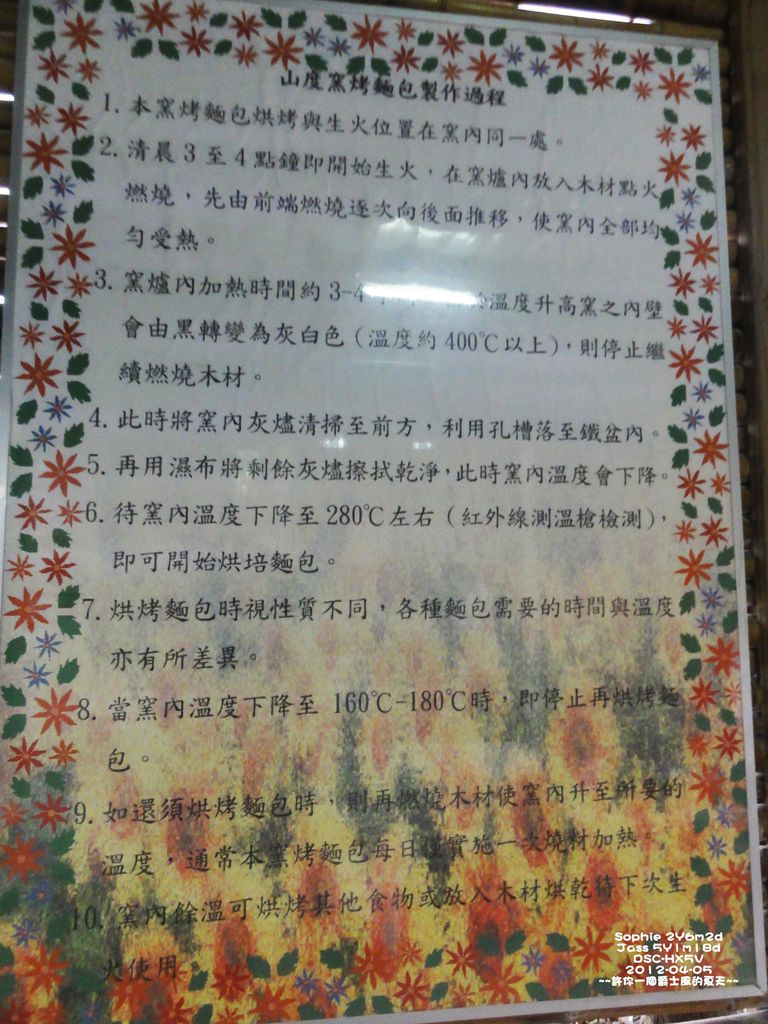 山度窯烤麵包製作過程
1. 本窯烤麵包烘烤與生火位置在窯內同一處。
2. 清晨3至4點鐘即開始生火，在窯爐內放入木材點火
燃燒，先由前端燃燒逐次向後面推移，使窯內全部均
勻受熱。
3. 窯爐內加熱時間約3-4 溫度升高窯之內壁
會由黑轉變為灰白色（溫度約400℃以上），則停止繼
續燃燒木材。
4. 此時將窯內灰燼清掃至前方，利用孔槽落至鐵盆內。
5. 再用濕布將剩餘灰燼擦拭乾淨，此時窯內溫度會下降。
6. 待窯內溫度下降至280℃左右（紅外線測溫槍檢測），
即可開始烘培麵包。
7. 烘烤麵包時視性質不同，各種麵包需要的時間與溫度
亦有所差異。
8. 當窯內溫度下降至 160℃-180℃時，即停止再烘烤麵
包。
9. 如還須烘烤麵包時，則再燃燒木材使窯內升至所要的
溫度，通常本窯烤麵包每日僅實施一次燒材加熱。
10. 窯內餘溫可烘烤其他食物或放入木材烘乾待下次生
火使用。
Sophie 2Y6m2d
Jass 5Y1m18d
DSC-HX5V
2012-04-05
~~許你一個爵士風的夏天~~